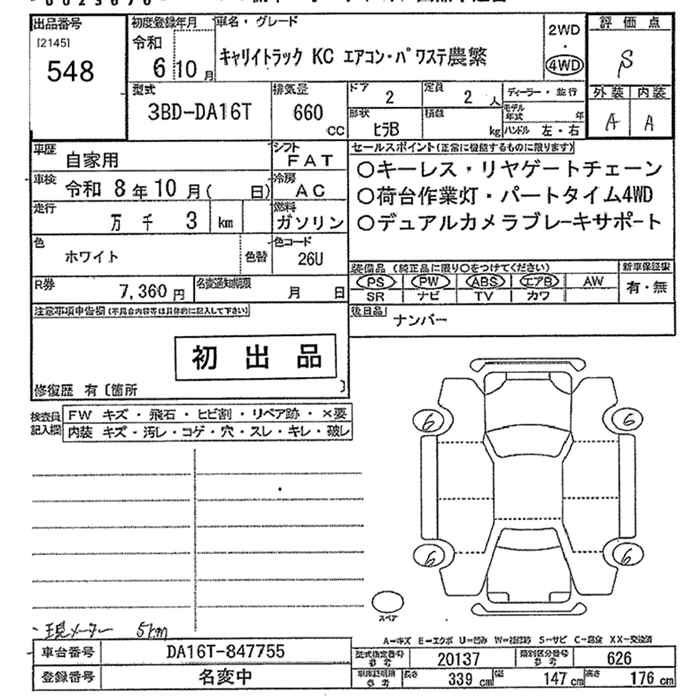 出品番号
[2145]
548
初度登録年月
令和
6 10 月
車名・グレード
キャリイトラック KC エアコン・パワステ農繁
2WD
・
4WD
評価点
S
外装 内装
A A
型式
3BD-DA16T
排気量
660
CC
ドア
2
定員
2 人
形状
ヒラB
積載
kg
ディーラー・並行
モデル年式
年
ハンドル 左・右
車歴
自家用
シフト
FAT
車検 令和 8 年 10 月( 日)
冷房
AC
走行
万 千 3 km
燃料
ガソリン
色
ホワイト
色替
色コード
26U
R券
7,360 円
名変通知期限
月 日
セールスポイント(正常に機能するものに限ります)
○キーレス・リヤゲートチェーン
○荷台作業灯・パートタイム4WD
○デュアルカメラブレーキサポート
装備品 (純正品に限り○をつけてください)
PS PW ABS エアB AW
SR ナビ TV カワ
新車保証書
有・無
後日品
ナンバー
注意事項申告欄(不具合内容等は具体的に記入して下さい)
初出品
修復歴 有〔箇所 〕
検査員記入欄
FW キズ・飛石・ヒビ割・リペア跡・×要
内装 キズ・汚レ・コゲ・穴・スレ・キレ・破レ
6 6
6 6
スペア
・現メーター 5km
A-キズ E-エクボ U-凹み W-補修跡 S-サビ C-腐食 XX-交換済
車台番号
DA16T-847755
登録番号
名変中
型式指定番号
参考
20137
類別区分番号
参考
626
車庫証明用
参考
長さ 339 cm 幅 147 cm 高さ 176 cm